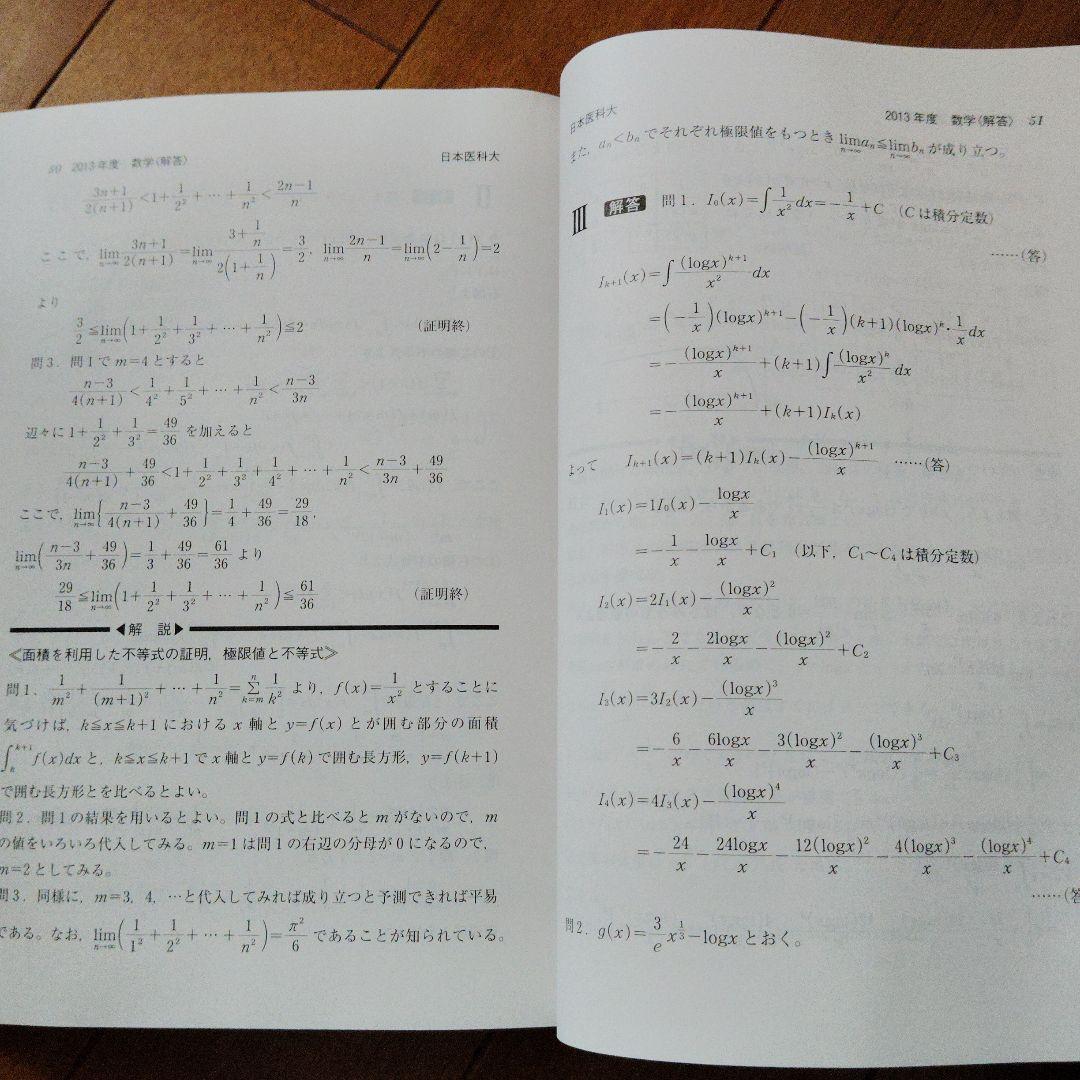 50 2013年度 数学〈解答〉 日本医科大
(3n+1)/(2(n+1))<1+1/2²+…+1/n²<(2n−1)/n
ここで, lim[n→∞] (3n+1)/(2(n+1))=lim[n→∞] (3+1/n)/(2(1+1/n))=3/2, lim[n→∞] (2n−1)/n=lim[n→∞](2−1/n)=2
より
3/2≦lim[n→∞](1+1/2²+1/3²+…+1/n²)≦2 (証明終)
問3. 問1でm=4とすると
(n−3)/(4(n+1))<1/4²+1/5²+…+1/n²<(n−3)/(3n)
辺々に1+1/2²+1/3²=49/36を加えると
(n−3)/(4(n+1))+49/36<1+1/2²+1/3²+1/4²+…+1/n²<(n−3)/(3n)+49/36
ここで, lim[n→∞]{(n−3)/(4(n+1))+49/36}=1/4+49/36=29/18,
lim[n→∞]((n−3)/(3n)+49/36)=1/3+49/36=61/36 より
29/18≦lim[n→∞](1+1/2²+1/3²+…+1/n²)≦61/36 (証明終)
◀解 説▶
≪面積を利用した不等式の証明, 極限値と不等式≫
問1. 1/m²+1/(m+1)²+…+1/n²=Σ[k=m→n] 1/k² より, f(x)=1/x² とすることに
気づけば, k≦x≦k+1におけるx軸とy=f(x)とが囲む部分の面積
∫[k→k+1] f(x)dxと, k≦x≦k+1でx軸とy=f(k)で囲む長方形, y=f(k+1)
で囲む長方形とを比べるとよい。
問2. 問1の結果を用いるとよい。問1の式と比べるとmがないので, m
の値をいろいろ代入してみる。m=1は問1の右辺の分母が0になるので,
m=2としてみる。
問3. 同様に, m=3, 4, …と代入してみれば成り立つと予測できれば平易
である。なお, lim[n→∞](1/1²+1/2²+…+1/n²)=π²/6であることが知られている。
日本医科大 2013年度 数学〈解答〉 51
また, aₙ<bₙでそれぞれ極限値をもつとき lim[n→∞]aₙ≦lim[n→∞]bₙが成り立つ。
Ⅲ 解答 問1. I₀(x)=∫1/x² dx=−1/x+C (Cは積分定数)
……(答)
Iₖ₊₁(x)=∫(logx)ᵏ⁺¹/x² dx
=(−1/x)(logx)ᵏ⁺¹−(−1/x)(k+1)(logx)ᵏ・1/x dx
=−(logx)ᵏ⁺¹/x+(k+1)∫(logx)ᵏ/x² dx
=−(logx)ᵏ⁺¹/x+(k+1)Iₖ(x)
よって Iₖ₊₁(x)=(k+1)Iₖ(x)−(logx)ᵏ⁺¹/x ……(答)
I₁(x)=1I₀(x)−logx/x
=−1/x−logx/x+C₁ (以下, C₁〜C₄は積分定数)
I₂(x)=2I₁(x)−(logx)²/x
=−2/x−2logx/x−(logx)²/x+C₂
I₃(x)=3I₂(x)−(logx)³/x
=−6/x−6logx/x−3(logx)²/x−(logx)³/x+C₃
I₄(x)=4I₃(x)−(logx)⁴/x
=−24/x−24logx/x−12(logx)²/x−4(logx)³/x−(logx)⁴/x+C₄
……(答
問2. g(x)=3/e x^(1/3)−logxとおく。